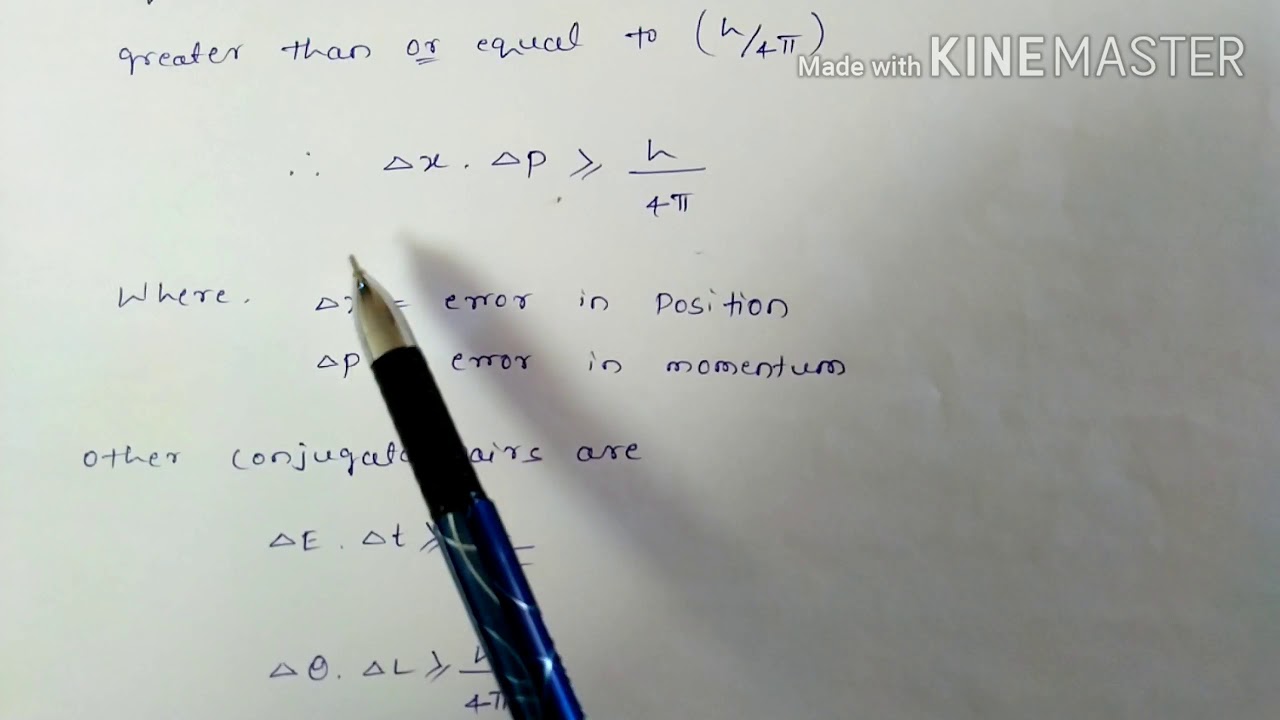 greater than or equal to (h/4π)
Made with KINEMASTER
∴ Δx . Δp ≥ h/4π
Where. Δx = error in Position
Δp error in momentum
other conjugate pairs are
ΔE . Δt ≥
Δθ. ΔL ≥ h/4π